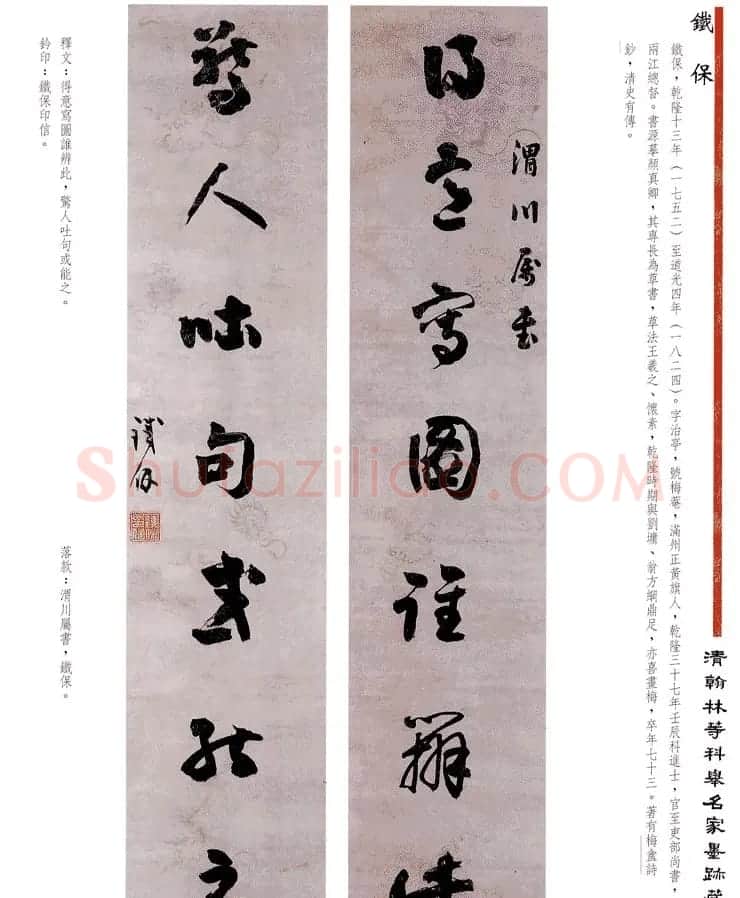 清翰林等科舉名家墨跡
鐵保
鐵保，乾隆十三年（一七五二）至道光四年（一八二四）。字治亭，號梅菴，滿州正黃旗人，乾隆三十七年壬辰科進士，官至吏部尚書，
兩江總督。書源摹顏真卿，其專長為草書，草法王羲之、懷素，乾隆時期與劉墉、翁方綱鼎足，亦喜畫梅，卒年七十三。著有梅盦詩
鈔，清史有傳。
渭川屬書
得意寫圖誰辨此
驚人吐句或能之
鐵保
鐵保印信
釋文：得意寫圖誰辨此，驚人吐句或能之。
落款：渭川屬書，鐵保。
鈐印：鐵保印信。
Shufaziliao.COM